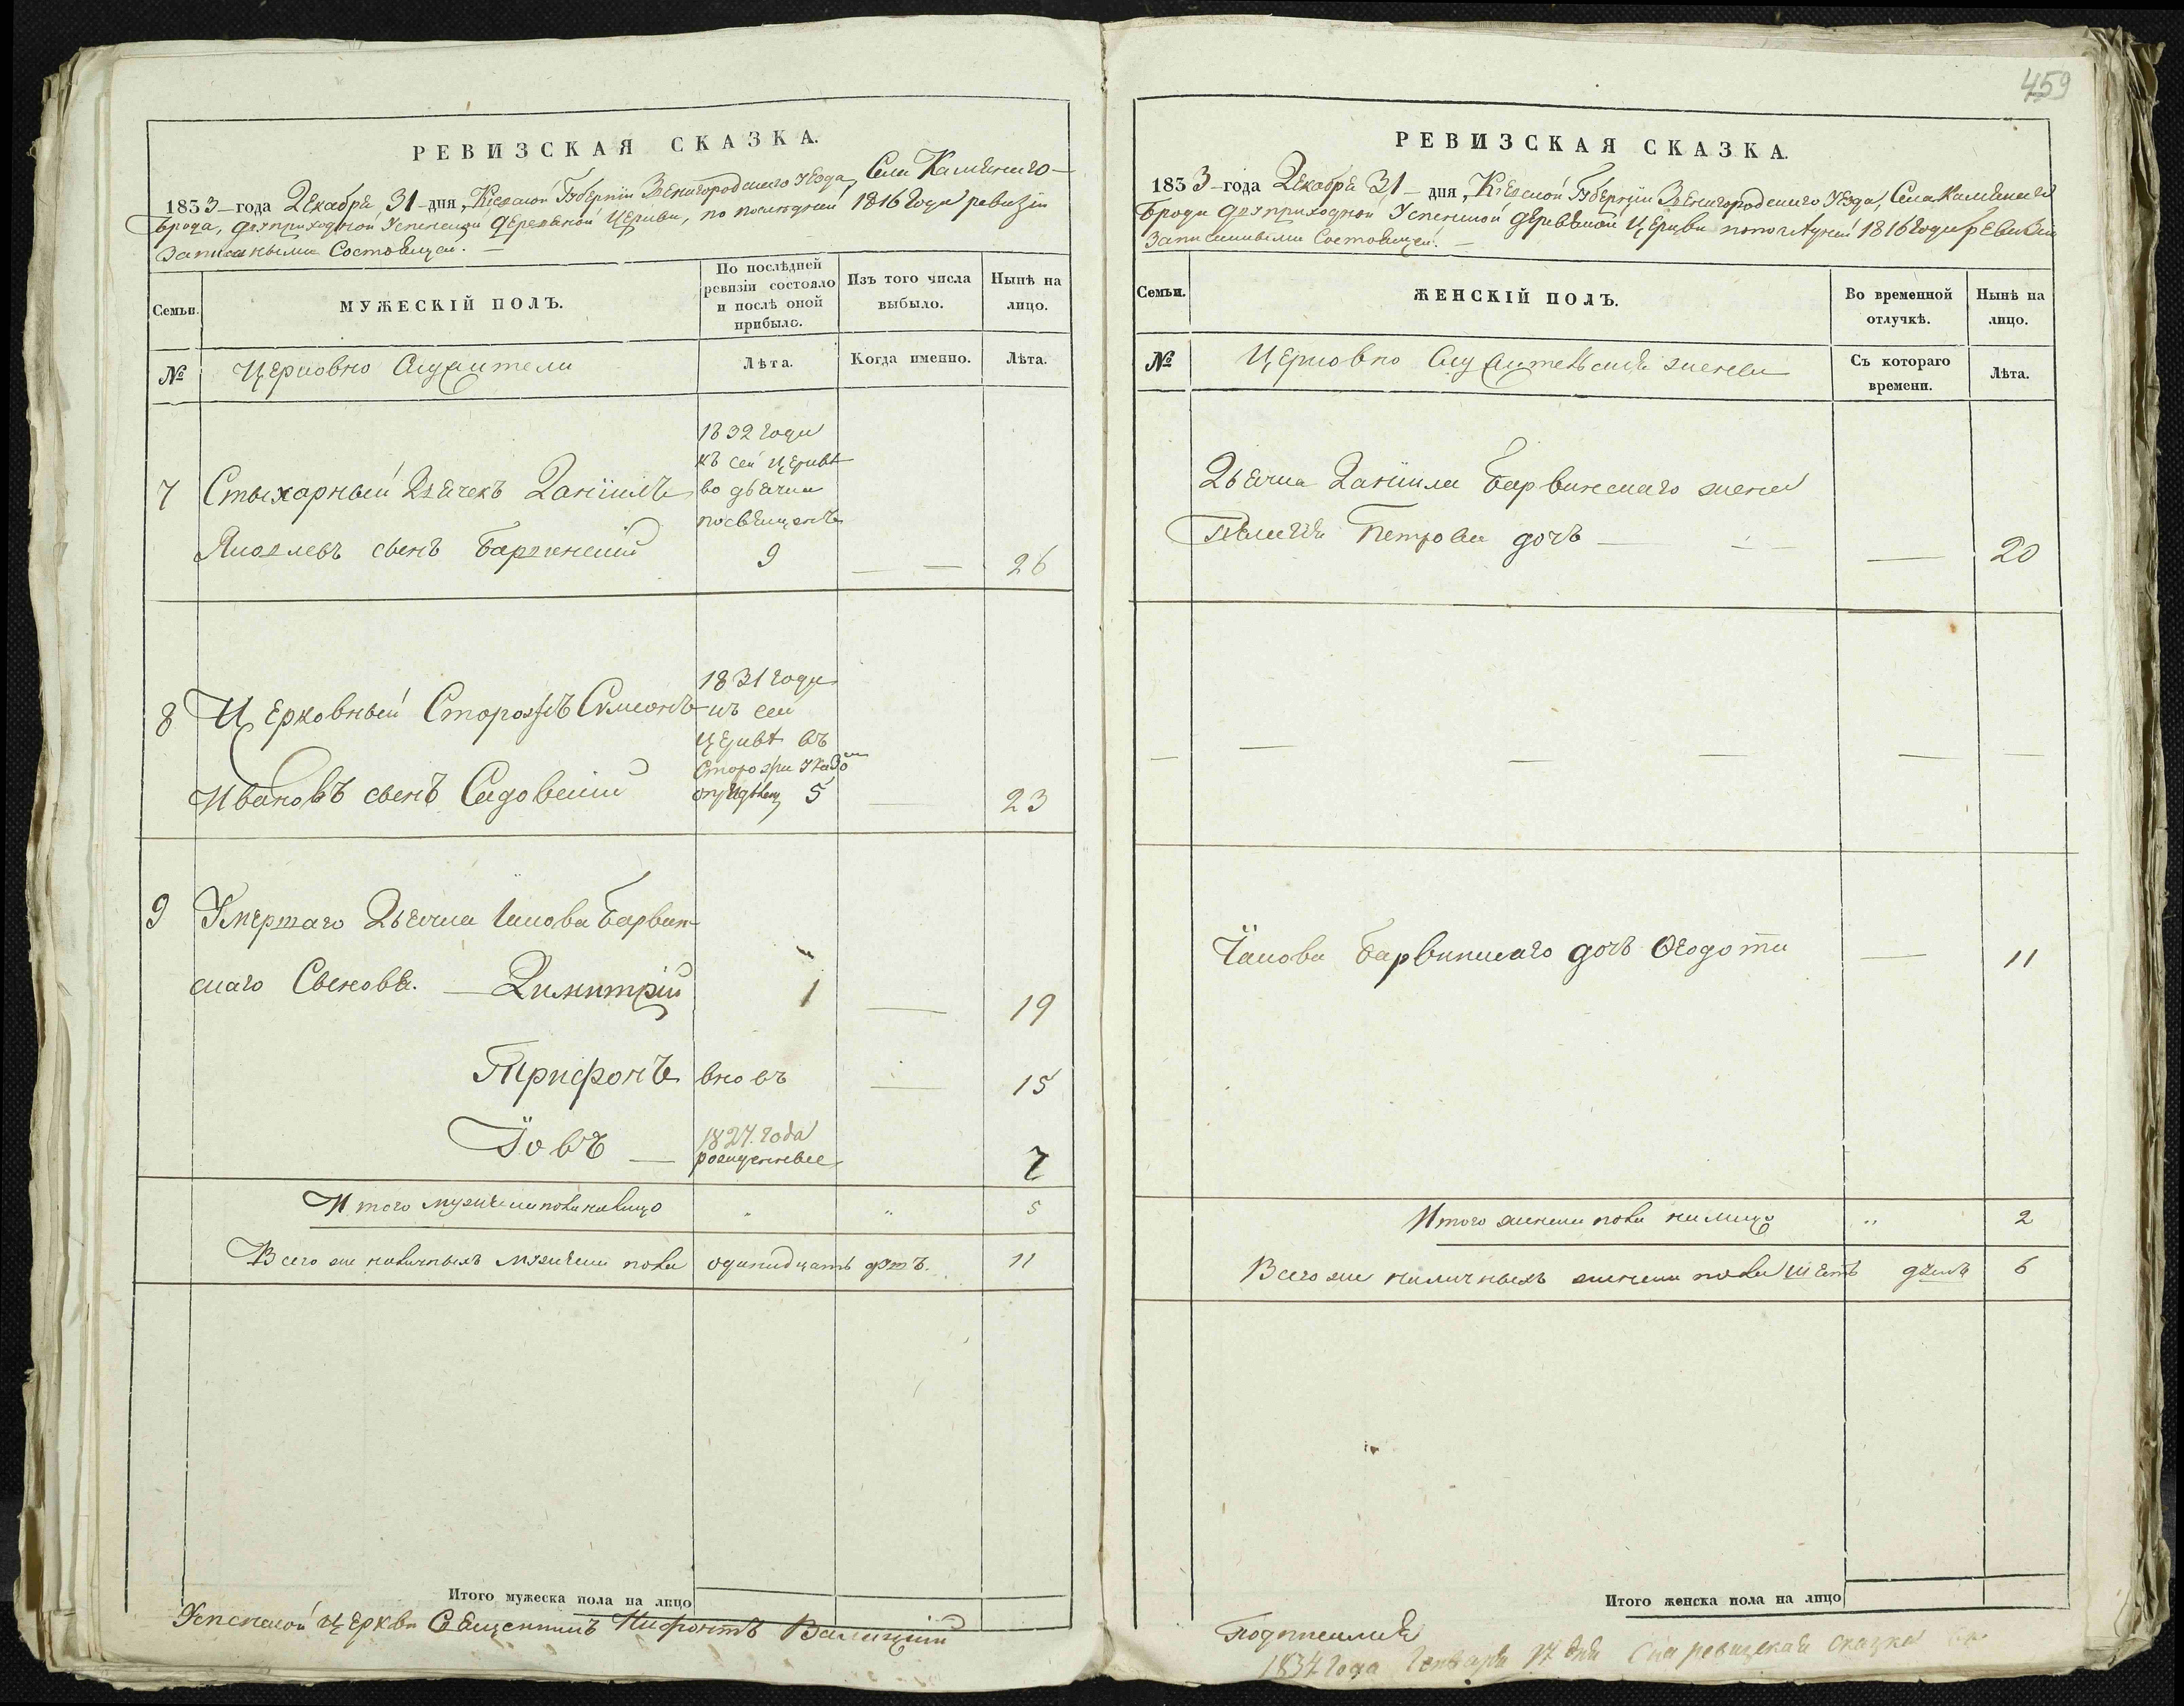 459
РЕВИЗСКАЯ СКАЗКА.
1833 года Декабря 31 дня, Кіевской Губерніи Звенигородскаго Уезда, Села Каменнаго
Брода, друприходной Успенской деревяной Церкви, по последней 1816 Года ревизіи
Записаными Состоящей.
Семьи.
МУЖЕСКІЙ ПОЛЪ.
По послѣдней ревизіи состояло и послѣ оной прибыло.
Изъ того числа выбыло.
Нынѣ на лицо.
№
Церковно Служители
Лѣта.
Когда именно.
Лѣта.
1832 Года
къ сей Церквѣ
7 Стыхарный Дьячекъ Даніилъ во дьячка
посвященъ
Яковлевъ сынъ Барвинский 9 — — 26
1831 Года
8 Церковный Сторожъ Симеонъ къ сей
Церквѣ въ
Сторожи
Ивановъ сынъ Садовский 5 — 23
9 Умершаго Дьячка Іакова Барвин-
скаго Сыновья. — Димитрий 1 — 19
Трифонъ вновь — 15
1827 года
Іовъ — рожденные 7
Итого мужеска пола на лицо " " 5
Всего же наличныхъ мужеска пола одинадцать душъ. 11
Итого мужеска пола на лицо
Успенской Церкви Священникъ Нифонтъ
РЕВИЗСКАЯ СКАЗКА.
1833 года Декабря 31 дня, Кіевской Губерніи Звенигородскаго Уезда, Села Каменнаго
Брода друприходной Успенской деревяной Церкви по последней 1816 Года ревизіи
Записанными Состоящей.
Семьи.
ЖЕНСКІЙ ПОЛЪ.
Во временной отлучкѣ.
Нынѣ на лицо.
№
Церковно Служительскія жены
Съ котораго времени.
Лѣта.
Дьячка Даніила Барвинскаго жена
Петрова дочь — — — 20
— — — — — —
Іакова Барвинскаго дочь Феодотія — 11
Итого женска пола на лицо " 2
Всего же наличныхъ женска пола шесть душъ 6
Итого женска пола на лицо
Подписался
1834 Года Генваря 17 дня Сия ревизская сказка